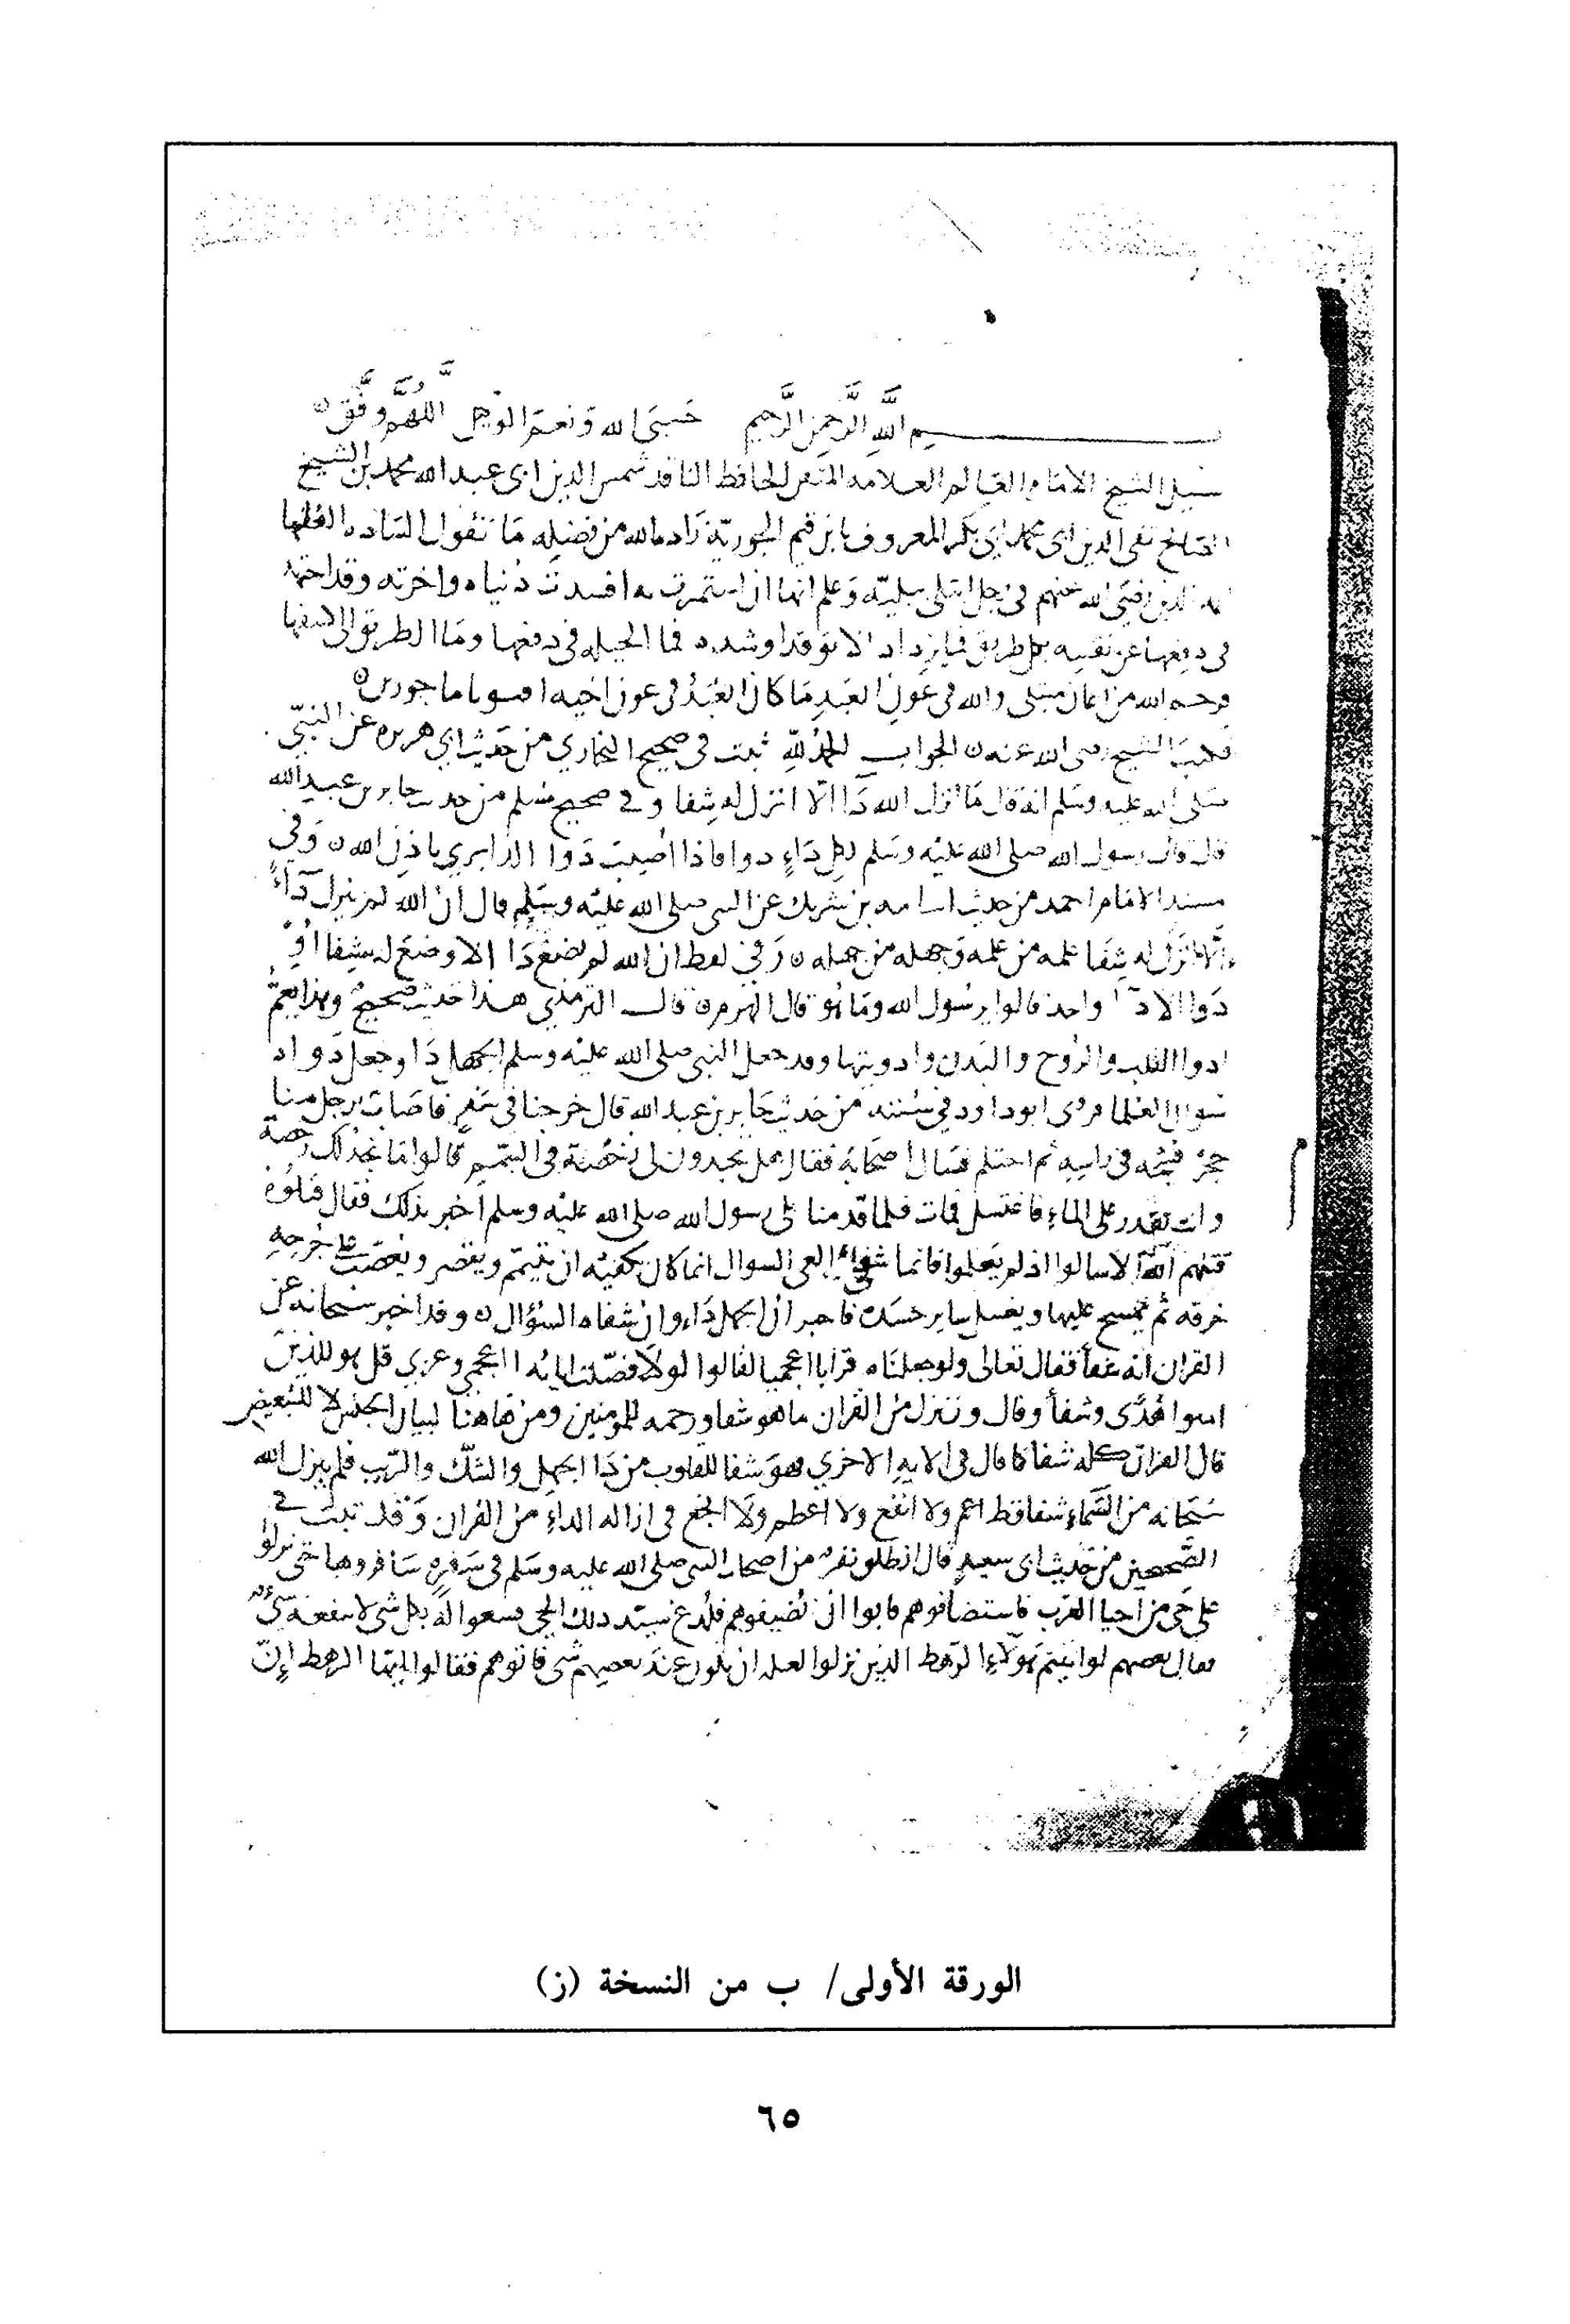 بسم الله الرحمن الرحيم حسبى الله ونعم الوكيل اللهم وفق
سيل الشيخ الامام العالم العلامه المتقن الحافظ الناقد شمس الدين ابى عبد الله محمد بن الشيخ
الصالح تقى الدين ابى بكر المعروف بابن قيم الجوزية زاده الله من فضله ما تقول الساده الفقها
ايمه الدين رضى الله عنهم فى رجل ابتلى ببلية وعلم انها ان استمرت به افسدت دنياه واخرته وقد اجتهد
فى دفعها عن نفسه بكل طريق فما يزداد الا توقدا وشده فما الحيله فى دفعها وما الطريق الى كشفها
فرحم الله من اعان مبتلى والله فى عون العبد ما كان العبد فى عون اخيه افتونا ماجورين
فكتب الشيخ رضى الله عنه الجواب الحمد لله ثبت فى صحيح البخاري من حديث ابي هريره عن النبى
صلى الله عليه وسلم انه قال ما انزل الله دا الا انزل له شفا وفى صحيح مسلم من حديث جابر بن عبد الله
قال قال رسول الله صلى الله عليه وسلم لكل داء دوا فاذا اصيب دوا الدا بري باذن الله وفى
مسند الامام احمد من حديث اسامه بن شريك عن النبى صلى الله عليه وسلم قال ان الله لم ينزل دآء
الا انزل له شفا علمه من علمه وجهله من جهله وفي لفظ ان الله لم يضع دا الا وضع له شفا او
دوا الا دآ واحد قالوا يرسول الله وما هو قال الهرم قال الترمذي هذا حديث صحيح وهذا يعم
ادوا القلب والروح والبدن وادويتها وقد جعل النبى صلى الله عليه وسلم الجهل دا وجعل دواه
سوال العلما فروى ابو داود في سننه من حديث جابر بن عبد الله قال خرجنا فى سفر فاصاب رجل منا
حجر فشجه فى راسه ثم احتلم فسال اصحابه فقال هل تجدون لى رخصة فى التيمم قالوا ما نجد لك رخصة
وانت تقدر على الماء فاغتسل فمات فلما قدمنا على رسول الله صلى الله عليه وسلم اخبر بذلك فقال قتلوه
قتلهم الله الا سالوا اذ لم يعلموا فانما شفاء العى السوال انما كان يكفيه ان يتيمم ويعصر ويعصب على جرحه
خرقه ثم يمسح عليها ويغسل ساير جسده فاخبر ان الجهل داء وان شفاه السؤال وقد اخبر سبحانه عن
القران انه شفا فقال تعالى ولو جعلناه قرانا اعجميا لقالوا لولا فصلت اياته ااعجمي وعربي قل هو للذين
امنوا هدى وشفا وقال وننزل من القران ما هو شفا ورحمه للمومنين ومن هاهنا لبيان الجنس لا للتبعيض
قال القران كله شفا كما قال فى الايه الاخري فهو شفا للقلوب من دا الجهل والشك والريب فلم ينزل الله
سبحانه من السماء شفا قط اعم ولا انفع ولا اعظم ولا انجع فى ازاله الداء من القران وقد ثبت فى
الصحيحين من حديث ابى سعيد قال انطلق نفر من اصحاب النبى صلى الله عليه وسلم فى سفره سافروها حتى نزلوا
على حى من احيا العرب فاستضافوهم فابوا ان يضيفوهم فلدغ سيد ذلك الحى فسعوا له بكل شى لا ينفعه شى
فقال بعضهم لو اتيتم هولاء الرهط الذين نزلوا لعله ان يكون عند بعضهم شى فاتوهم فقالوا ايها الرهط ان
الورقة الأولى/ ب من النسخة (ز)
٦٥